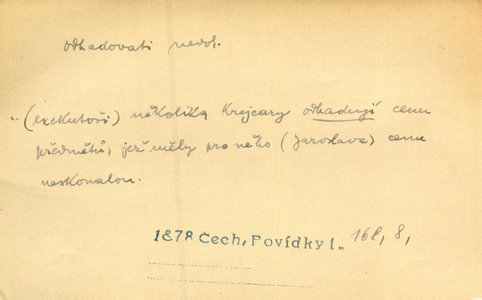 odhadovati nedok.
„(exekutoři) několika krejcary odhadují cenu
předmětů, jež měly pro něho (Jaroslava) cenu
neskonalou.
1878 Čech, Povídky I„ 168, 8,